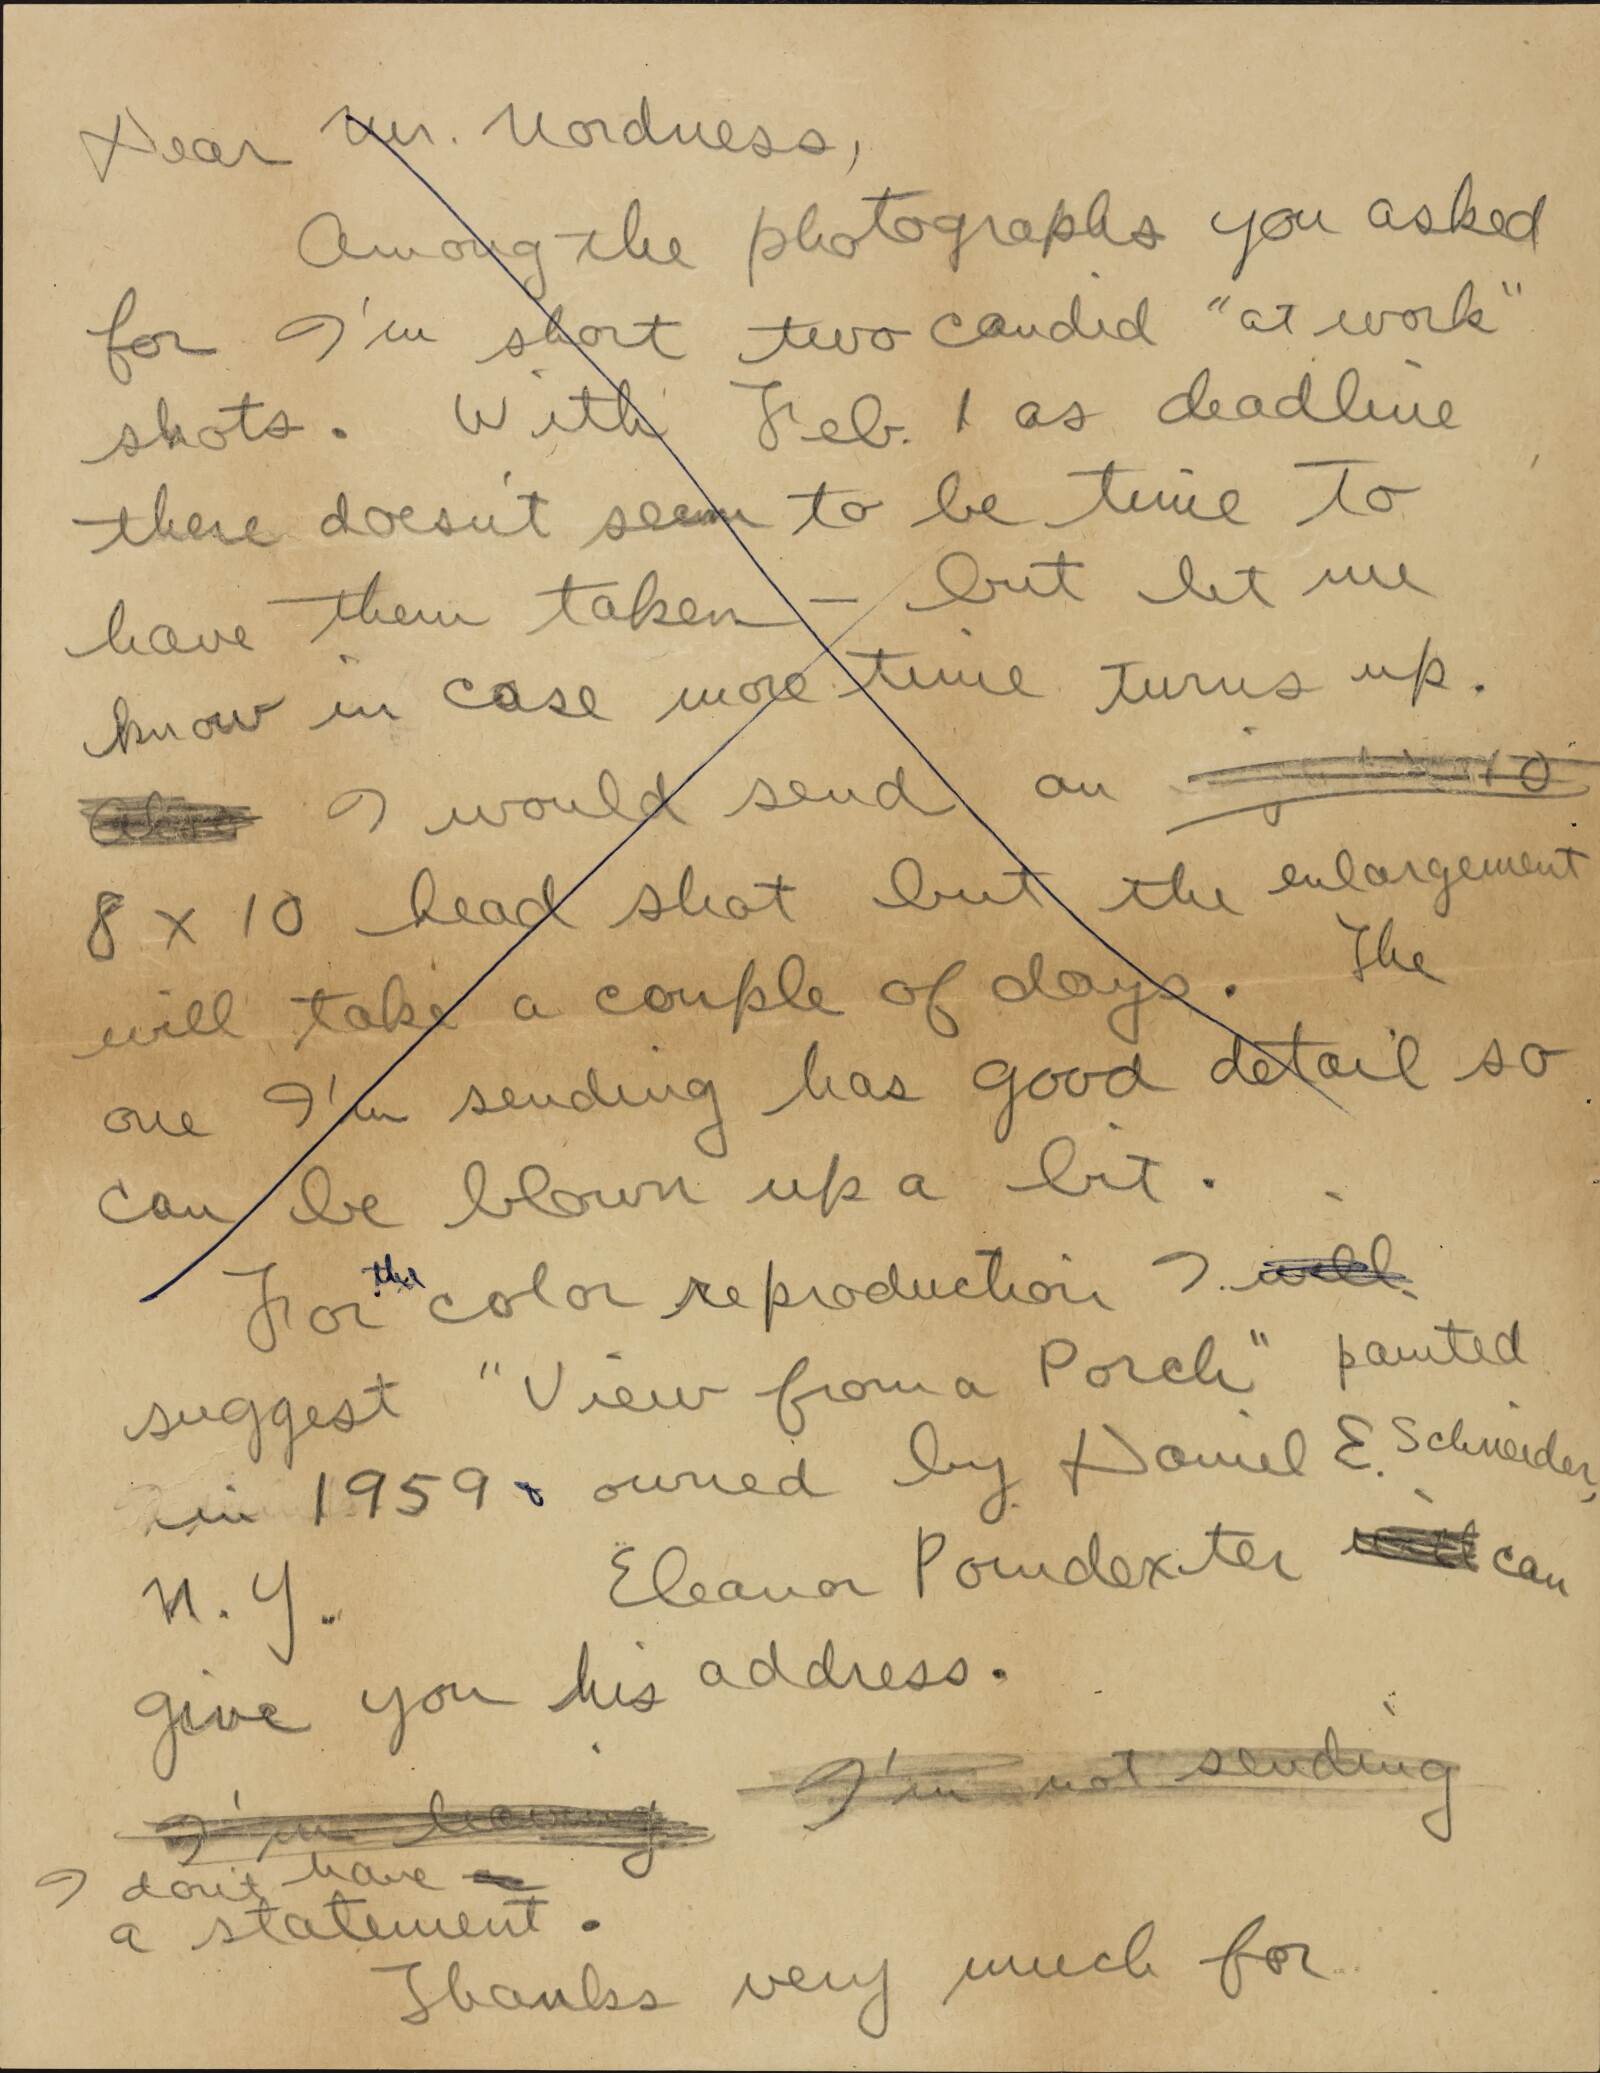 Dear Mr. Nordness,
Among the photographs you asked
for I'm short two candid "at work"
shots. With Feb. 1 as deadline
there doesn't seem to be time to
have them taken – but let me
know in case more time turns up.
I would send an
8 x 10 head shot but the enlargement
will take a couple of days. The
one I'm sending has good detail so
can be blown up a bit.
For the color reproduction I will
suggest "View from a Porch" painted
in 1959. owned by Daniel E. Schneider,
N.Y. Eleanor Poindexter will can
give you his address.
I'm not sending
I'm having
I don't have
a statement.
Thanks very much for